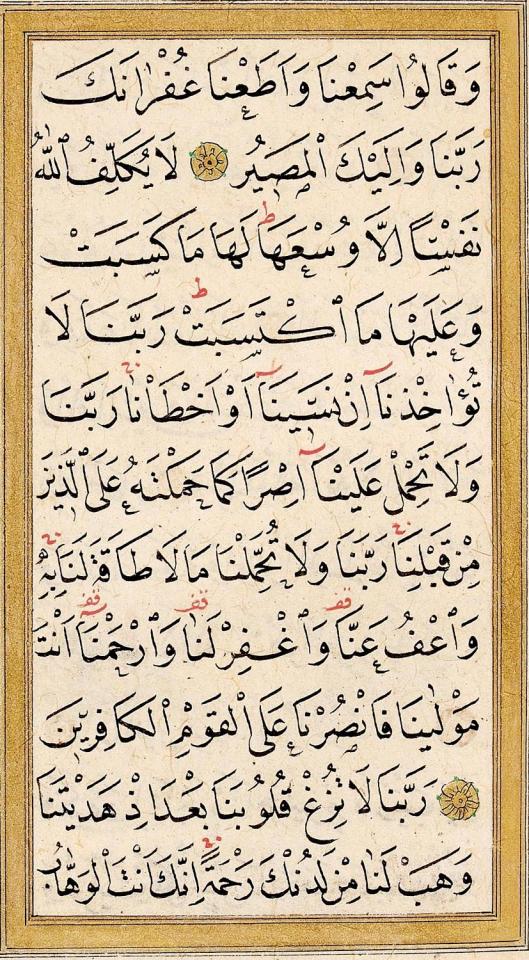 وَقَالُوا سَمِعْنَا وَاَطَعْنَا غُفْرَانَكَ
رَبَّنَا وَاِلَيْكَ الْمَصِيرُ لَا يُكَلِّفُ اللّٰهُ
نَفْسًا اِلَّا وُسْعَهَا ط لَهَا مَا كَسَبَتْ
وَعَلَيْهَا مَا اكْتَسَبَتْ ط رَبَّنَا لَا
تُؤَاخِذْنَا اِنْ نَسِينَا اَوْ اَخْطَاْنَا رَبَّنَا
وَلَا تَحْمِلْ عَلَيْنَا اِصْرًا كَمَا حَمَلْتَهُ عَلَى الَّذِينَ
مِنْ قَبْلِنَا رَبَّنَا وَلَا تُحَمِّلْنَا مَا لَا طَاقَةَ لَنَا بِهِ
وَاعْفُ عَنَّا قف وَاغْفِرْ لَنَا قف وَارْحَمْنَا قف اَنْتَ
مَوْلٰينَا فَانْصُرْنَا عَلَى الْقَوْمِ الْكَافِرِينَ
رَبَّنَا لَا تُزِغْ قُلُوبَنَا بَعْدَ اِذْ هَدَيْتَنَا
وَهَبْ لَنَا مِنْ لَدُنْكَ رَحْمَةً اِنَّكَ اَنْتَ الْوَهَّابُ